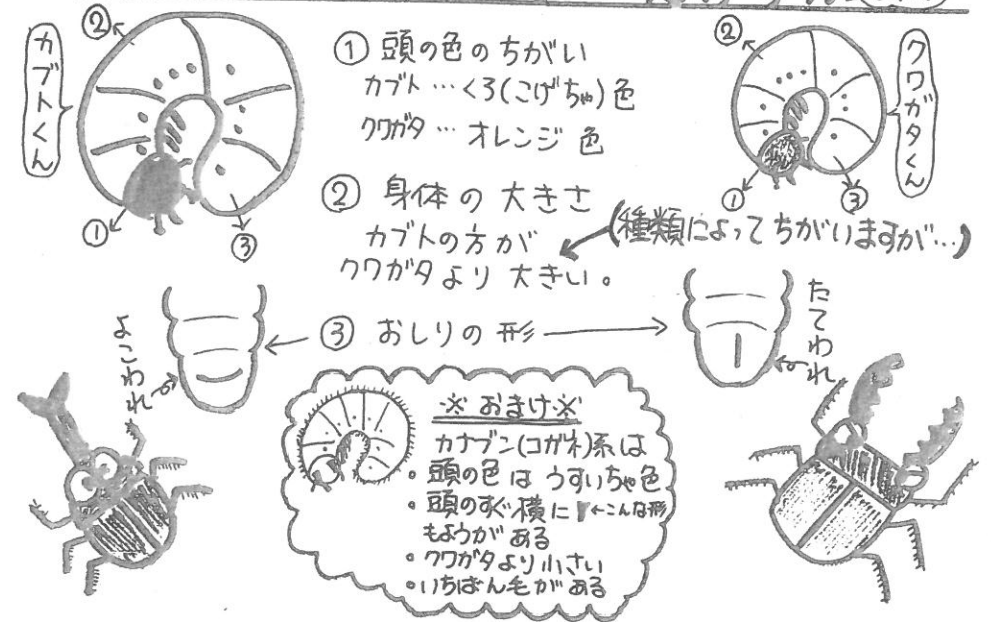 カブトくん
②
①
③
① 頭の色のちがい
カブト…くろ(こげちゃ)色
クワガタ… オレンジ 色
② 身体の大きさ
カブトの方が
クワガタより大きい。
(種類によってちがいますが…)
クワガタくん
②
①
③
③ おしりの形
よこわれ
たてわれ
※おまけ※
カナブン(コガネ)系は
・頭の色はうすいちゃ色
・頭のすぐ横に ←こんな形
もようがある
・クワガタより小さい
・いちばん毛がある